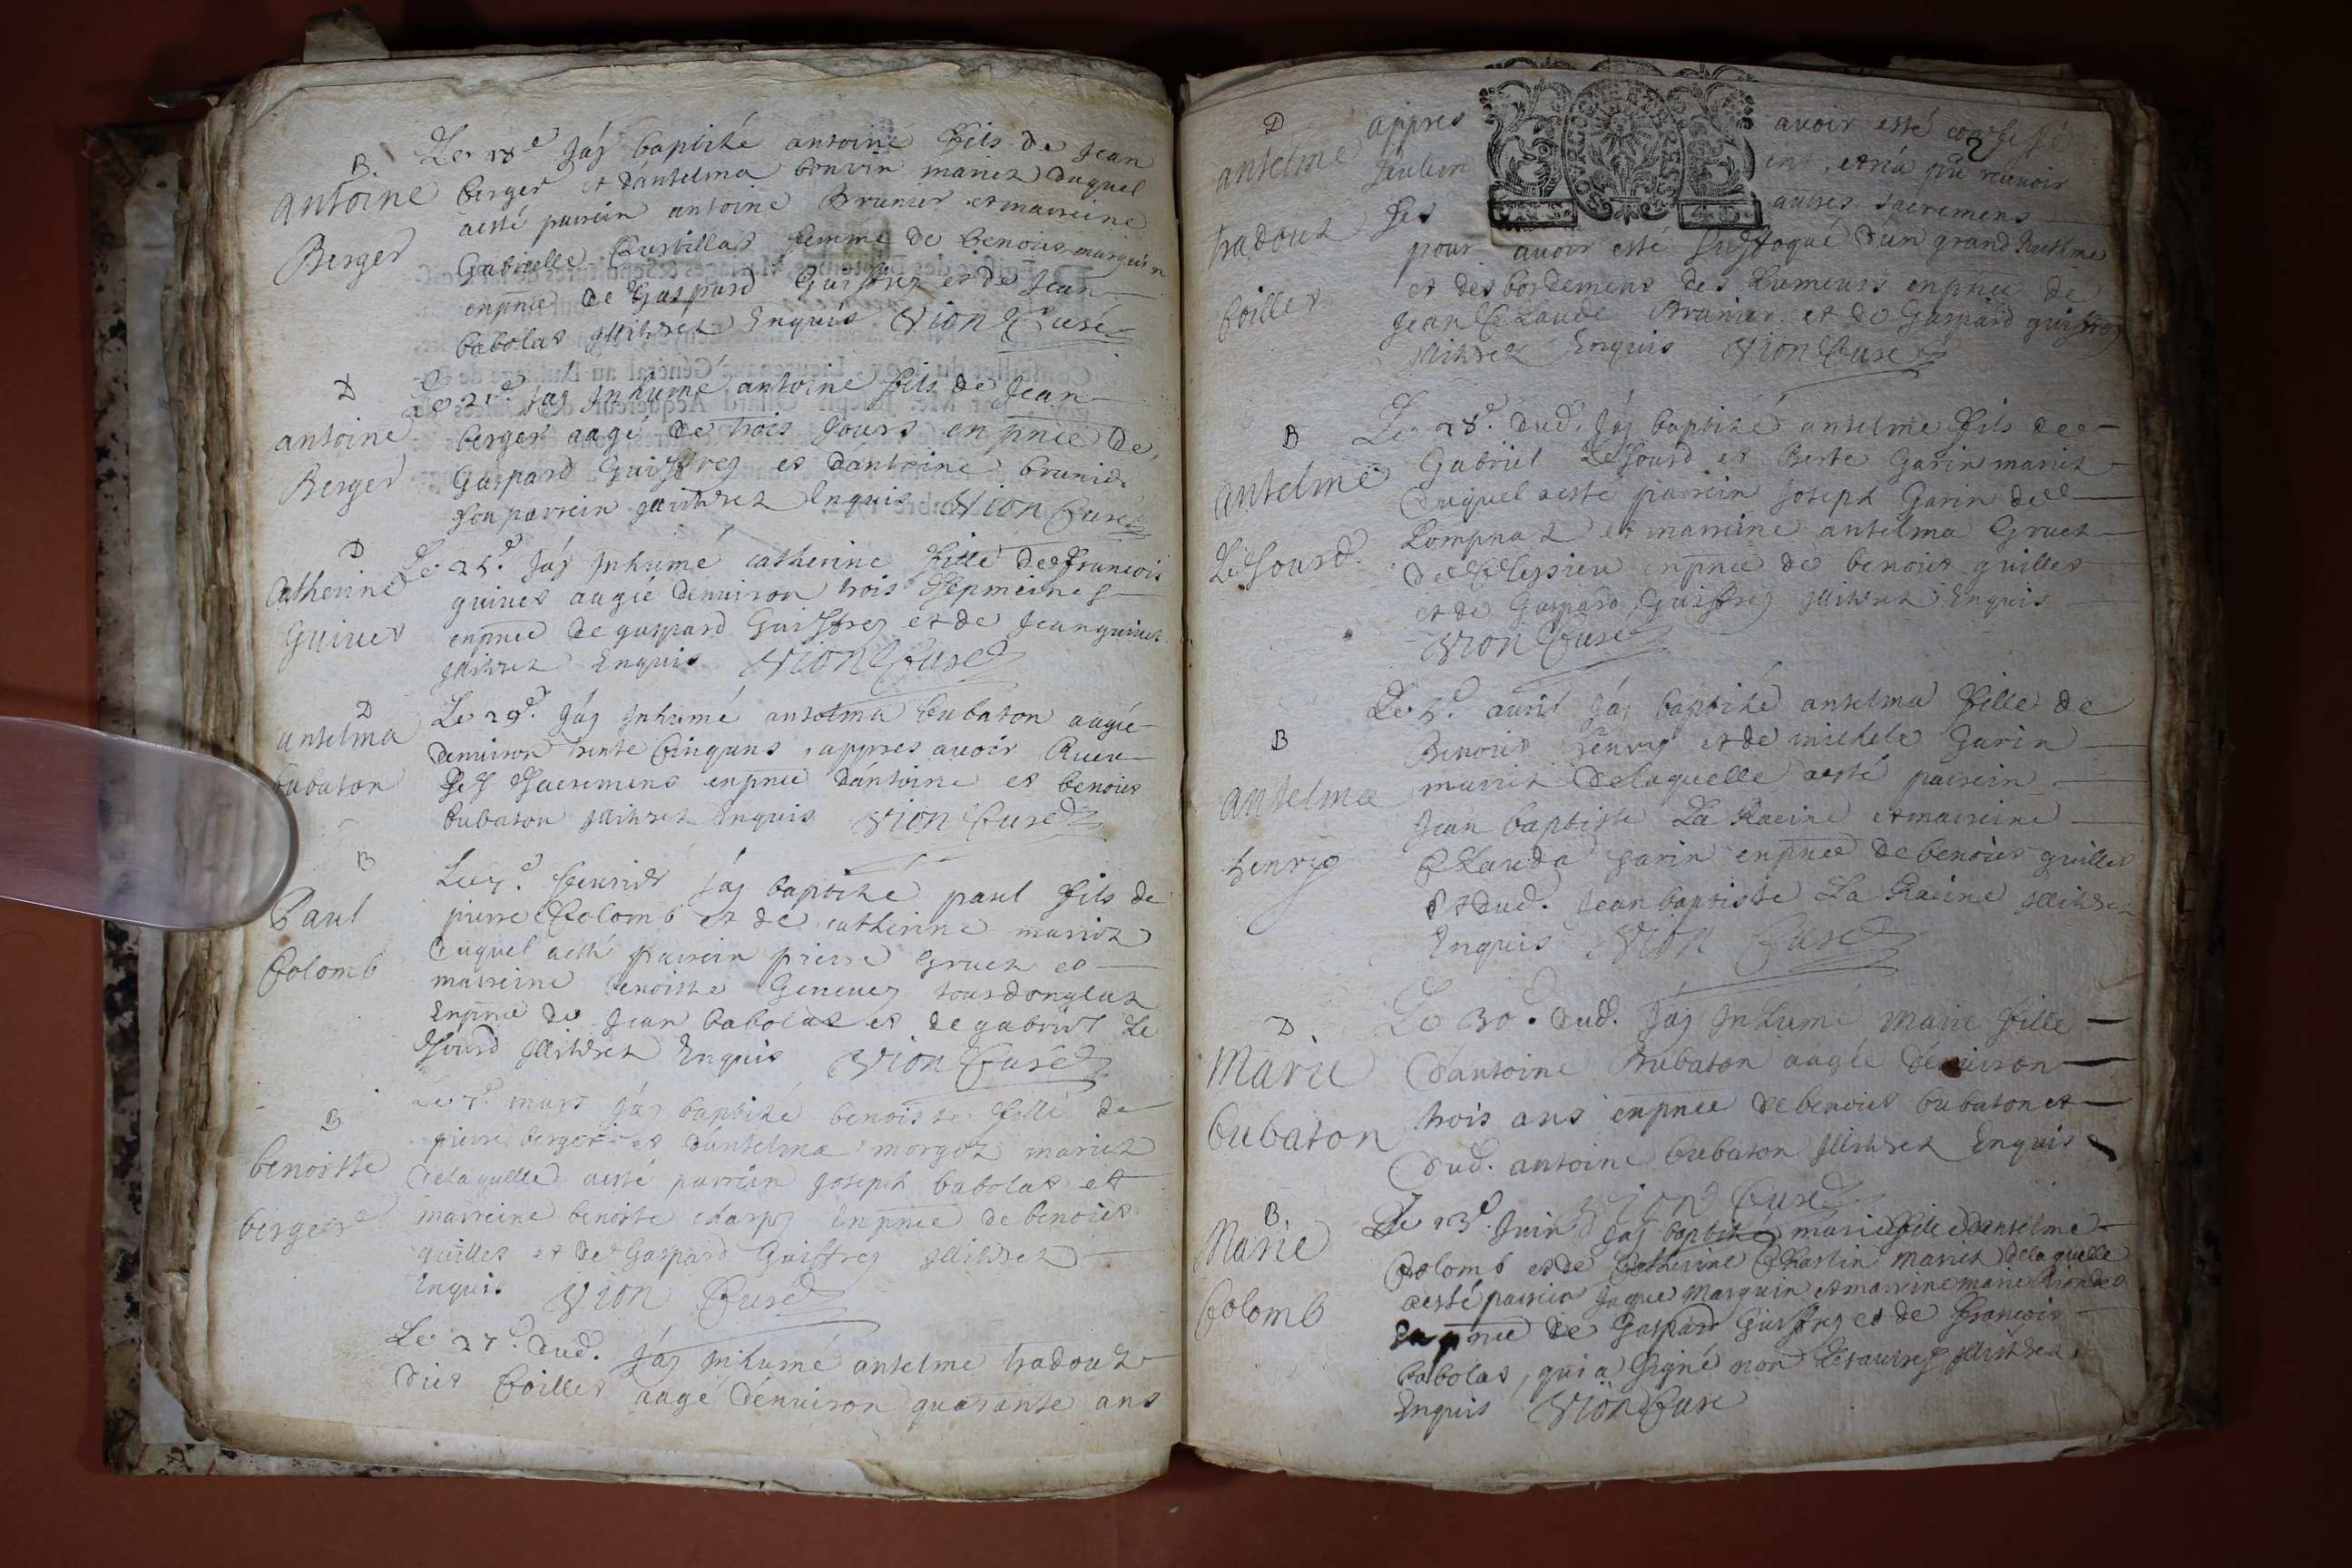 B.
antoine
Berger
Le 18e Jáy baptisé antoine fils de Jean
berger et dantelma bonvin mariez duquel
aesté parrein antoine Brunier et marreine
Gabrielle femme de benoist marguin
enpnce de Gaspard Guiffrey et de Jean
babolat Illitérez Enquis Vion Curé
D
antoine
Berger
Le 21e Jáy Inhumé antoine fils de Jean
berger aagé de trois Jours en pnce de
Gaspard Guiffrey et dantoine brunier
son parrein Illitérez Enquis Vion Curé
D
Catherine
Guinet
Le 25e Jáy Inhumé catherine fille de francois
guinet aagée denuiron trois sepmeines
enpnce de gaspard Guiffrey et de Jean guinet
Illitérez Enquis Vion Curé
D
antelma
bubaton
Le 29e Jáy Inhumé antelma bubaton aagée
denuiron trente Cinq ans, appres auoir Receu
ses sacremens enpnce dántoine et benoist
bubaton Illitérez Enquis Vion Curé
B
Paul
Colomb
Le 7e feurier Jáy baptisé paul fils de
pierre Colomb et de catherine mariez
duquel aesté parrein pierre Gruet et
marreine benoiste Geneuey tous donglas
Enpnce de Jean babolat et de gabriel Le
sourd Illitérez Enquis Vion Curé
B
benoiste
berger
Le 7e mars Jáy baptisé benoiste fille de
pierre berger et dántelma morgoz mariez
delaquelle aesté parrein Joseph babolat et
marreine benoite charpy Enpnce de benoist
guillet et de Gaspard Guiffrey Illitérez
Enquis Vion Curé
Le 27e dud. Jáy Inhumé antelme tradout
diet Coillet aagé dénuiron quarante ans
D
antelme
tradout
Coillet
appres auoir esté confessé
seulem ent, et ná pu receuoir
ses autres sacremens
pour avoir esté suffoqué d'un grand Rusthme
et desbordemens des humeurs enpnce de
Jean Claude Brunier et de Gaspard guiffrey
Illitérez Enquis Vion Curé
B
antelme
Le Sourd
Le 28e dud. Jáy baptisé antelme fils de
Gabriel Le Sourd et Berte Garin mariez
duquel aesté parrein Joseph Garin de
Lompnaz et marreine antelma Gruet
de Cleyzieu enpnce de benoist guillet
et de Gaspard Guiffrey Illitérez Enquis
Vion Curé
B
antelma
henry
Le 5e auril Jáy baptisé antelma fille de
Benoist henry et de michele Garin
mariez delaquelle aesté parrein
Jean baptiste La Racine et marreine
Clauda garin enpnce de benoist guillet
et dud. Jean baptiste La Racine Illitérez
Enquis Vion Curé
D.
Marie
bubaton
Le 30e dud. Jáy Inhumé Marie fille
dántoine Bubaton aagée dénuiron
trois ans enpnce de benoist bubaton et
dud. antoine bubaton Illitérez Enquis
Vion Curé
B
Marie
Colomb
Le 13e Juin Jáy baptisé marie fille dantelme
Colomb et de Catherine Charlin mariez delaquelle
aesté parrein Jaque Marguin et marreine marie
Enpnce de Gaspard Guiffrey et de francois
babolat, qui a signé non Lesautres Illitérez
Enquis Vion Curé